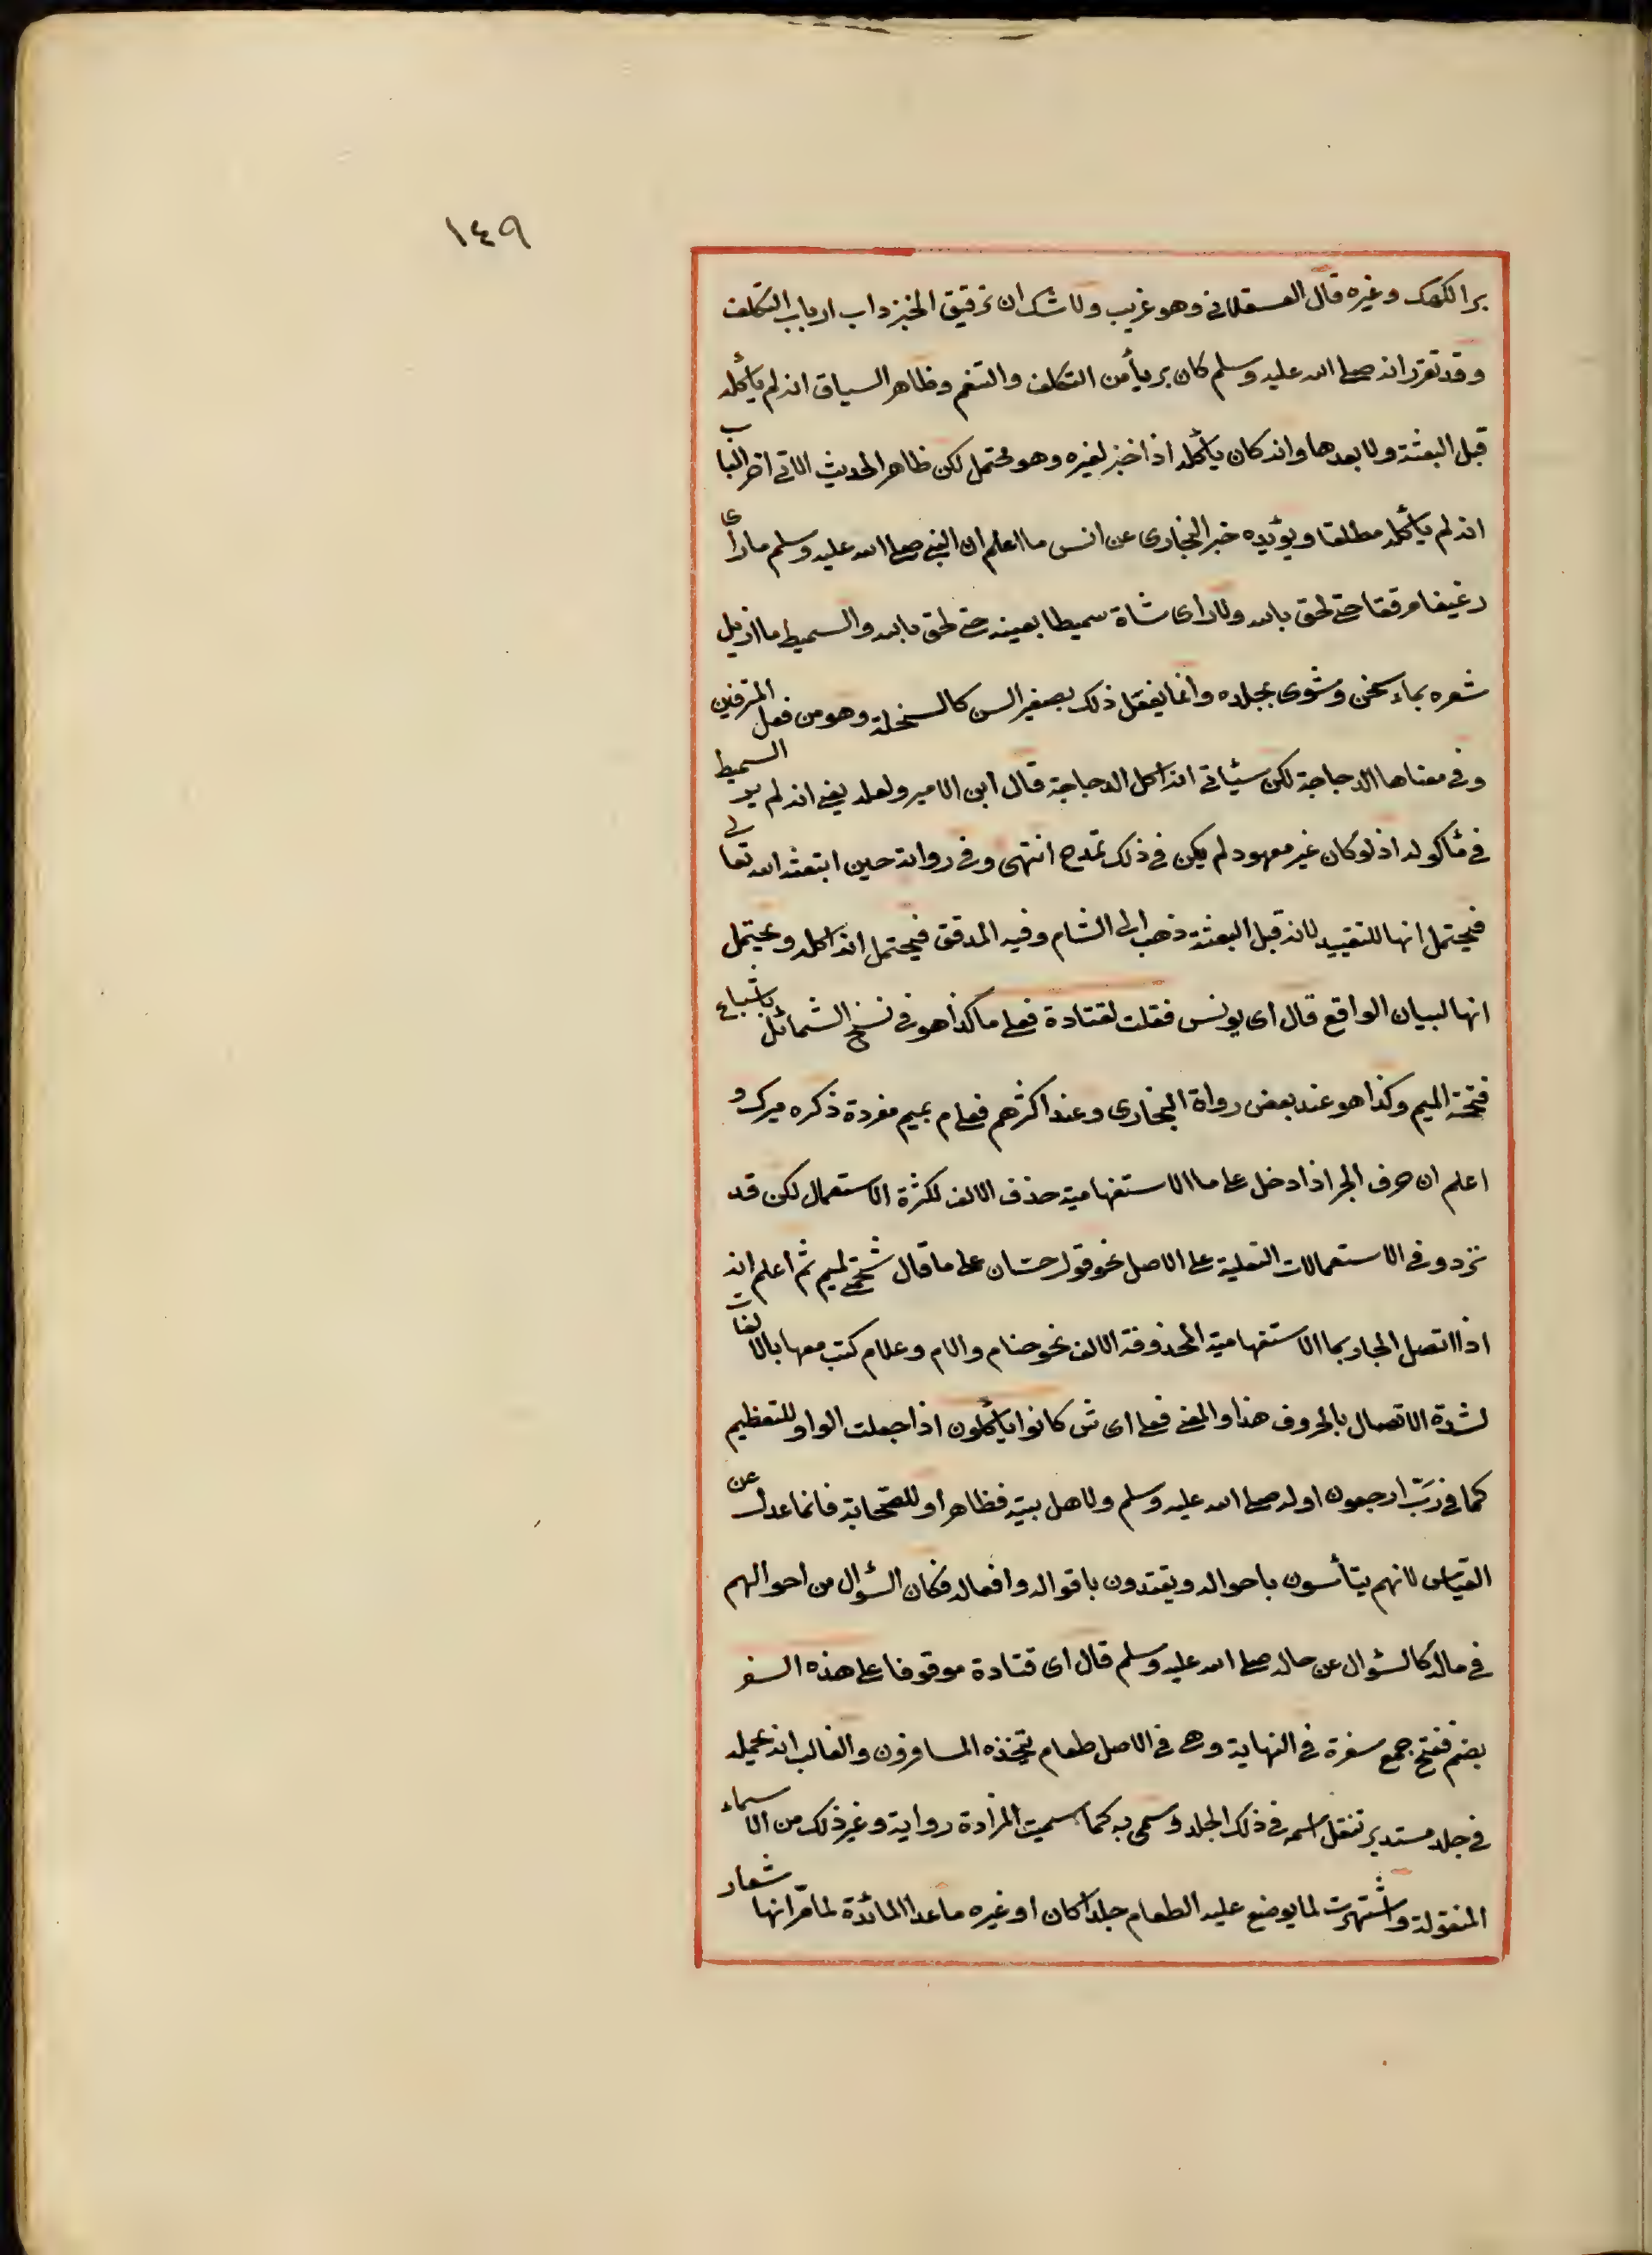 ١٤٩
برا لكعك وغيره قال العسقلانى وهو غريب ولا شك ان ترقيق الخبز داب ارباب التكلف
وقد تقرر انه صلى الله عليه وسلم كان بريأ من التكلف والتنعم وظاهر السياق انه لم يأكله
قبل البعثة ولا بعدها وانه كان يأكله اذا خبز لغيره وهو محتمل لكن ظاهر الحديث الاتى اخر الباب
انه لم يأكله مطلقا ويؤيده خبر البخارى عن انس ما اعلم ان النبى صلى الله عليه وسلم ما رأى
رغيفا مرققا حتى لحق بالله ولا رأى شاة سميطا بعينه حتى لحق بالله والسميط ما ازيل
شعره بماء سخن وشوى بجلده وانما يفعل ذلك بصغير السن كالسخلة وهو من فعل المترفين
وفى معناها الدجاجة لكن سيأتى انه اكل الدجاجة قال ابن الامير ولعله يعنى انه لم ير السميط
فى مأكوله اذ لو كان غير معهود لم يكن فى ذلك تمدح انتهى وفى رواية حين ابتعثه الله تعالى
فيحتمل انها للتقييد لانه قبل البعثة ذهب الى الشام وفيه المدقق فيحتمل انه اكله ويحتمل
انها لبيان الواقع قال اى يونس فقلت لقتادة فعلى ما كذا هو فى نسخ الشمائل باشباع
فتحة الميم وكذا هو عند بعض رواة البخارى وعند اكثرهم فعلام بميم مفردة ذكره ميرك و
اعلم ان حرف الجر اذا دخل على ما الاستفهامية حذف الالف لكثرة الاستعمال لكن قد
ترد وفى الاستعمالات القليلة على الاصل نحو قول حسّان على ما قال يشتمنى لئيم ثم اعلم انه
اذا اتصل الجار بما الاستفهامية المحذوفة الالف نحو حتام والام وعلام كتب معها بالالفات
لشدة الاتصال بالحروف هذا والمعنى فعلى اى شئ كانوا يأكلون اذا جعلت الواو للتعظيم
كما فى رَبّ ارجعون او له صلى الله عليه وسلم ولاهل بيته فظاهر او للصحابة فانما عدل عن
القياس لانهم يتأسون باحواله ويقتدون باقواله وافعاله فكان السؤال من احوالهم
فى ماله كالسؤال عن حاله صلى الله عليه وسلم قال اى قتادة موقوفا على هذه السفر
بضم ففتح جمع سفرة فى النهاية وهى فى الاصل طعام يتخذه المسافرون والغالب انه يحمله
فى جلد مستدير تنقل اسمه فى ذلك الجلد وسمى به كما سميت المزادة رواية وغير ذلك من الاسماء
المنقولة واشتهرت لما يوضع عليه الطعام جلدا كان او غيره ما عدا المائدة لما مرّ انها شعار